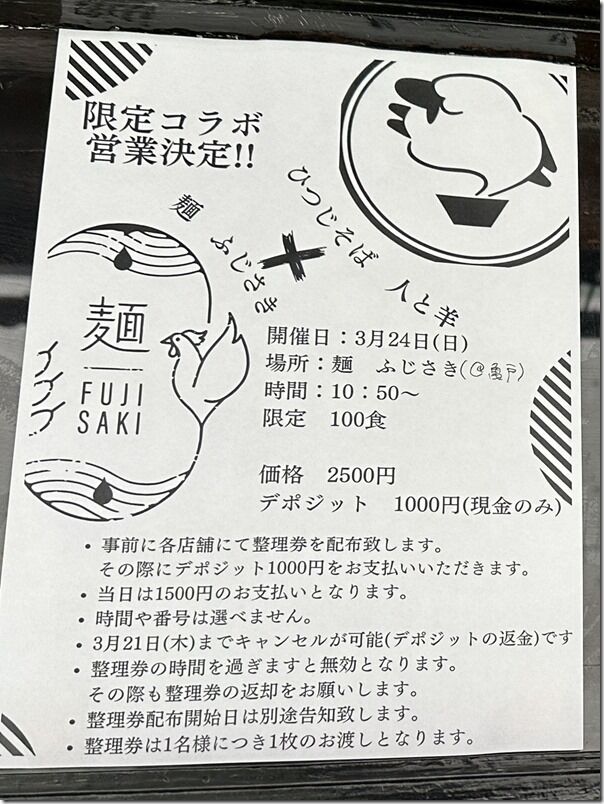 限定コラボ
営業決定!!
麺 ふじさき
×
ひつじそば 人と羊
麺
FUJI
SAKI
開催日：3月24日(日)
場所：麺 ふじさき(@亀戸)
時間：10：50～
限定 100食
価格 2500円
デポジット 1000円(現金のみ)
• 事前に各店舗にて整理券を配布致します。
その際にデポジット1000円をお支払いいただきます。
• 当日は1500円のお支払いとなります。
• 時間や番号は選べません。
• 3月21日(木)までキャンセルが可能(デポジットの返金)です
• 整理券の時間を過ぎますと無効となります。
その際も整理券の返却をお願いします。
• 整理券配布開始日は別途告知致します。
• 整理券は1名様につき1枚のお渡しとなります。